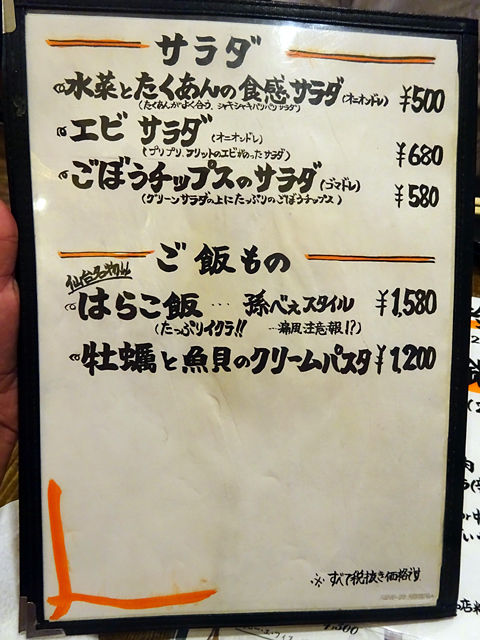 サラダ
水菜とたくあんの食感サラダ(オニオンドレ) ¥500
(たくあんがよく合う、シャキシャキパリパリサラダ)
エビサラダ(オニオンドレ) ¥680
(プリプリ、フリットのエビがのったサラダ)
ごぼうチップスのサラダ(ゴマドレ) ¥580
(グリーンサラダの上にたっぷりのごぼうチップス)
ご飯もの
仙台名物!!
はらこ飯…孫べぇスタイル ¥1,580
(たっぷりイクラ!! …痛風注意報!?)
牡蠣と魚貝のクリームパスタ ¥1,200
※すべて税抜き価格です